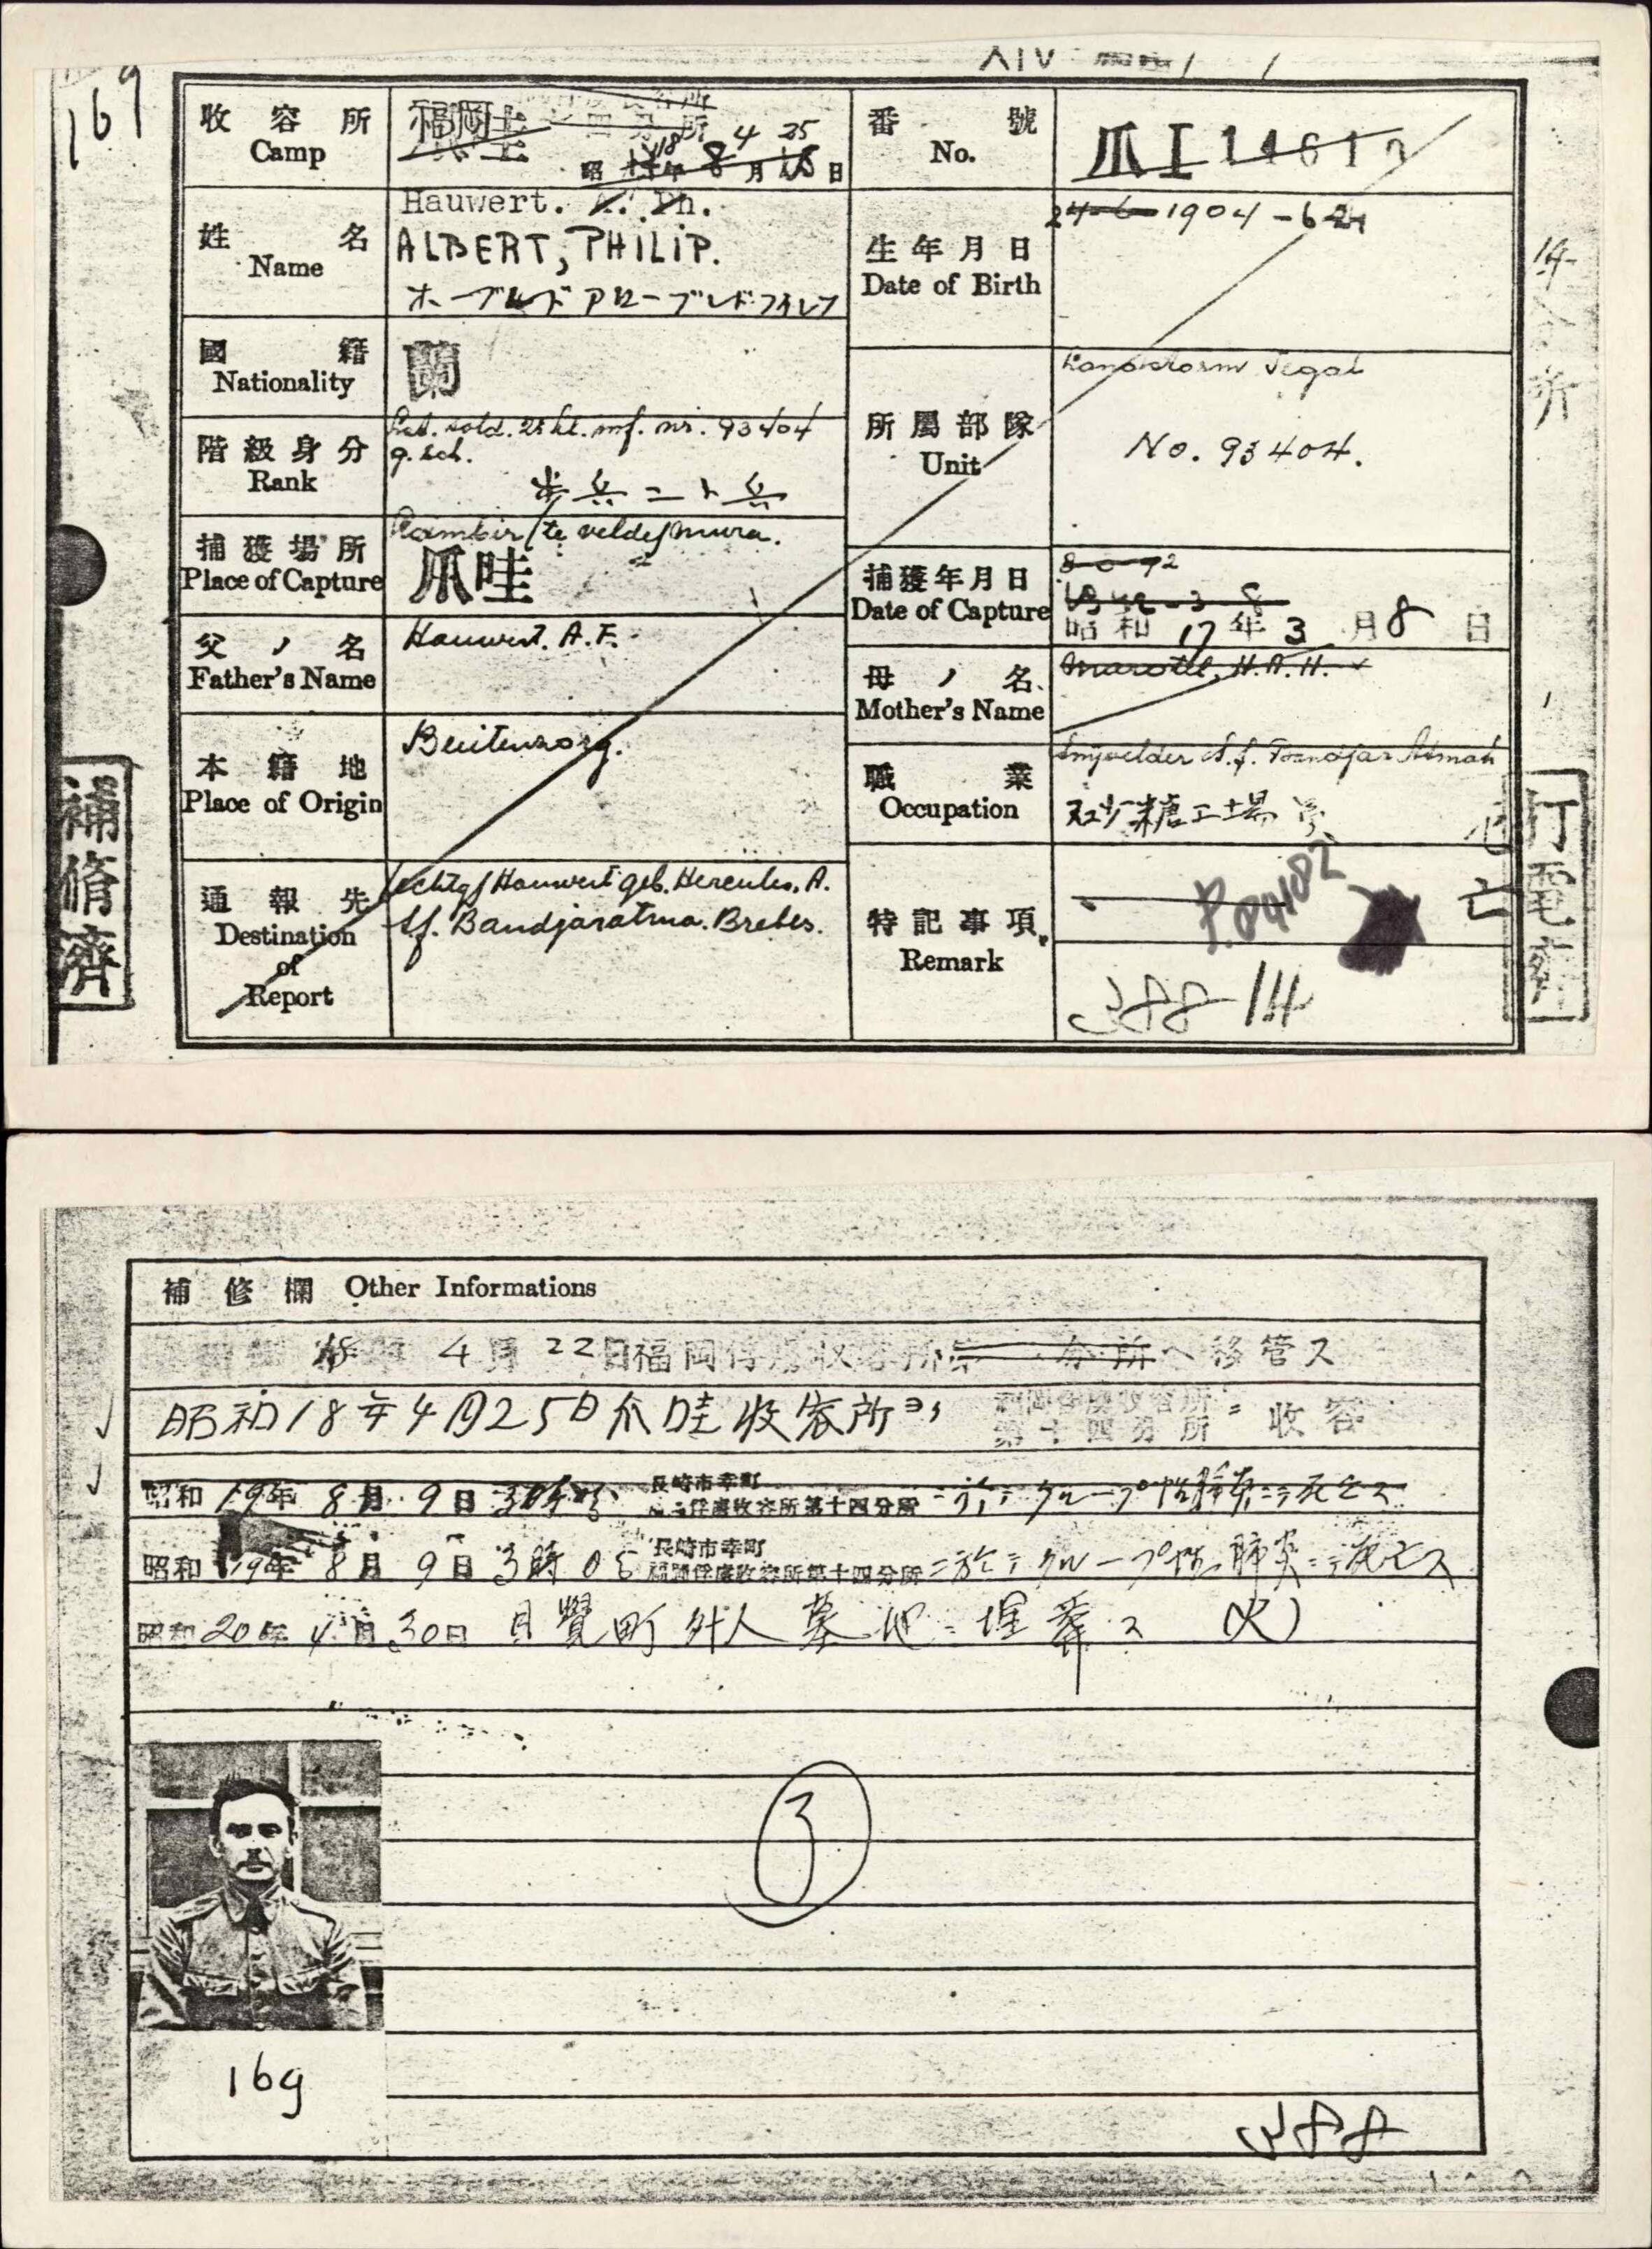 169
收容所
Camp
福岡
昭 18年 8 4 月 25 日
番號
No.
爪 I 1461
姓名
Name
Hauwert. A. Ph.
ALBERT, PHILIP.
生年月日
Date of Birth
24-6 1904-6-24
國籍
Nationality
蘭
階級身分
Rank
sold. 2e kl. inf. nr. 93404
g. sch.
歩兵二ト兵
所屬部隊
Unit
Landstorm Tegal
No. 93404.
捕獲場所
Place of Capture
/te velde/
爪哇
捕獲年月日
Date of Capture
1942-3-8
昭和 17 年 3 月 8 日
父ノ名
Father's Name
Hauwert. A. F.
母ノ名
Mother's Name
H. A. H.
本籍地
Place of Origin
Buitenzorg.
職業
Occupation
砂糖工場
通報先
Destination
of
Report
Hauwert geb. Hercules. A.
Sf. Bandjaratma. Brebes.
特記事項
Remark
388 14
死亡
補脩濟
打電濟
補修欄 Other Informations
4月22日福岡俘虜收容所第 分所ヘ移管ス
昭和18年4月25日爪哇收容所ヨリ 福岡俘虜收容所第十四分所ニ收容
昭和19年8月9日 長崎市幸町 俘虜收容所第十四分所ニ於テクループ性肺炎ニテ死亡ス
昭和19年8月9日3時05 長崎市幸町 福岡俘虜收容所第十四分所ニ於テクループ性肺炎ニテ死亡ス
昭和20年4月30日 目覺町外人墓地ニ埋葬ス (火)
3
169
388